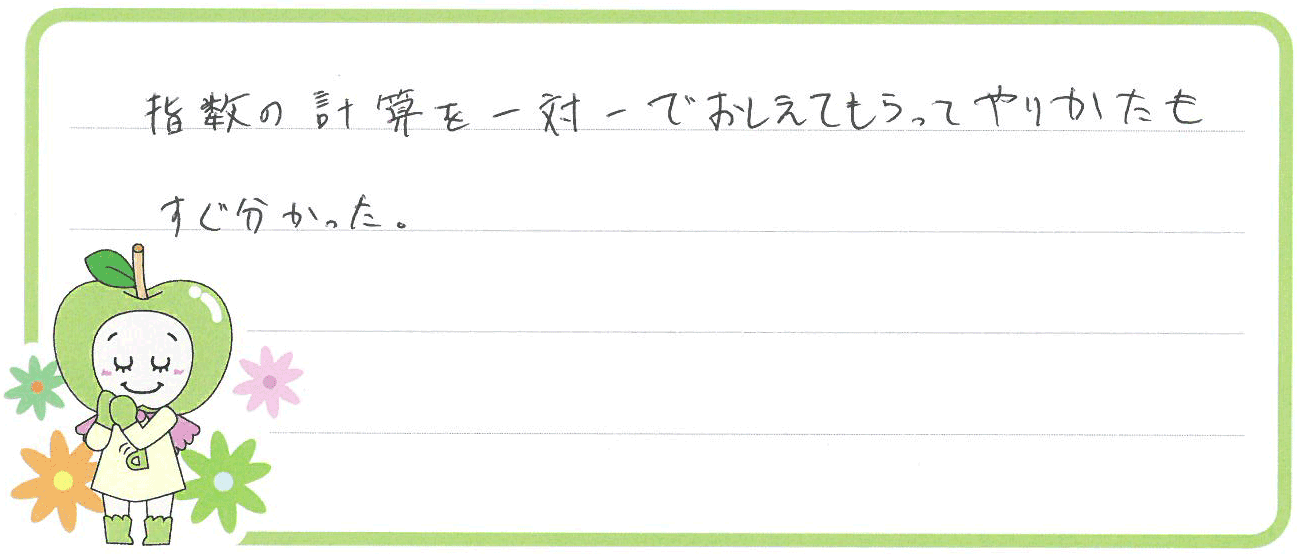 指数の計算を一対一でおしえてもらってやりかたも
すぐ分かった。